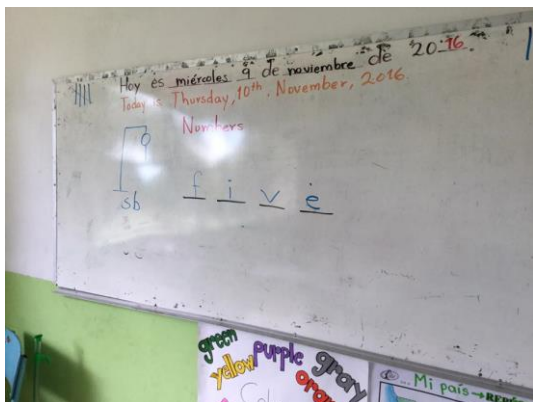 Hoy es miércoles 9 de noviembre de 2016.
Today is Thursday, 10th, November, 2016
Numbers
sb
f i v e
green
yellow
purple
gray
Mi país →